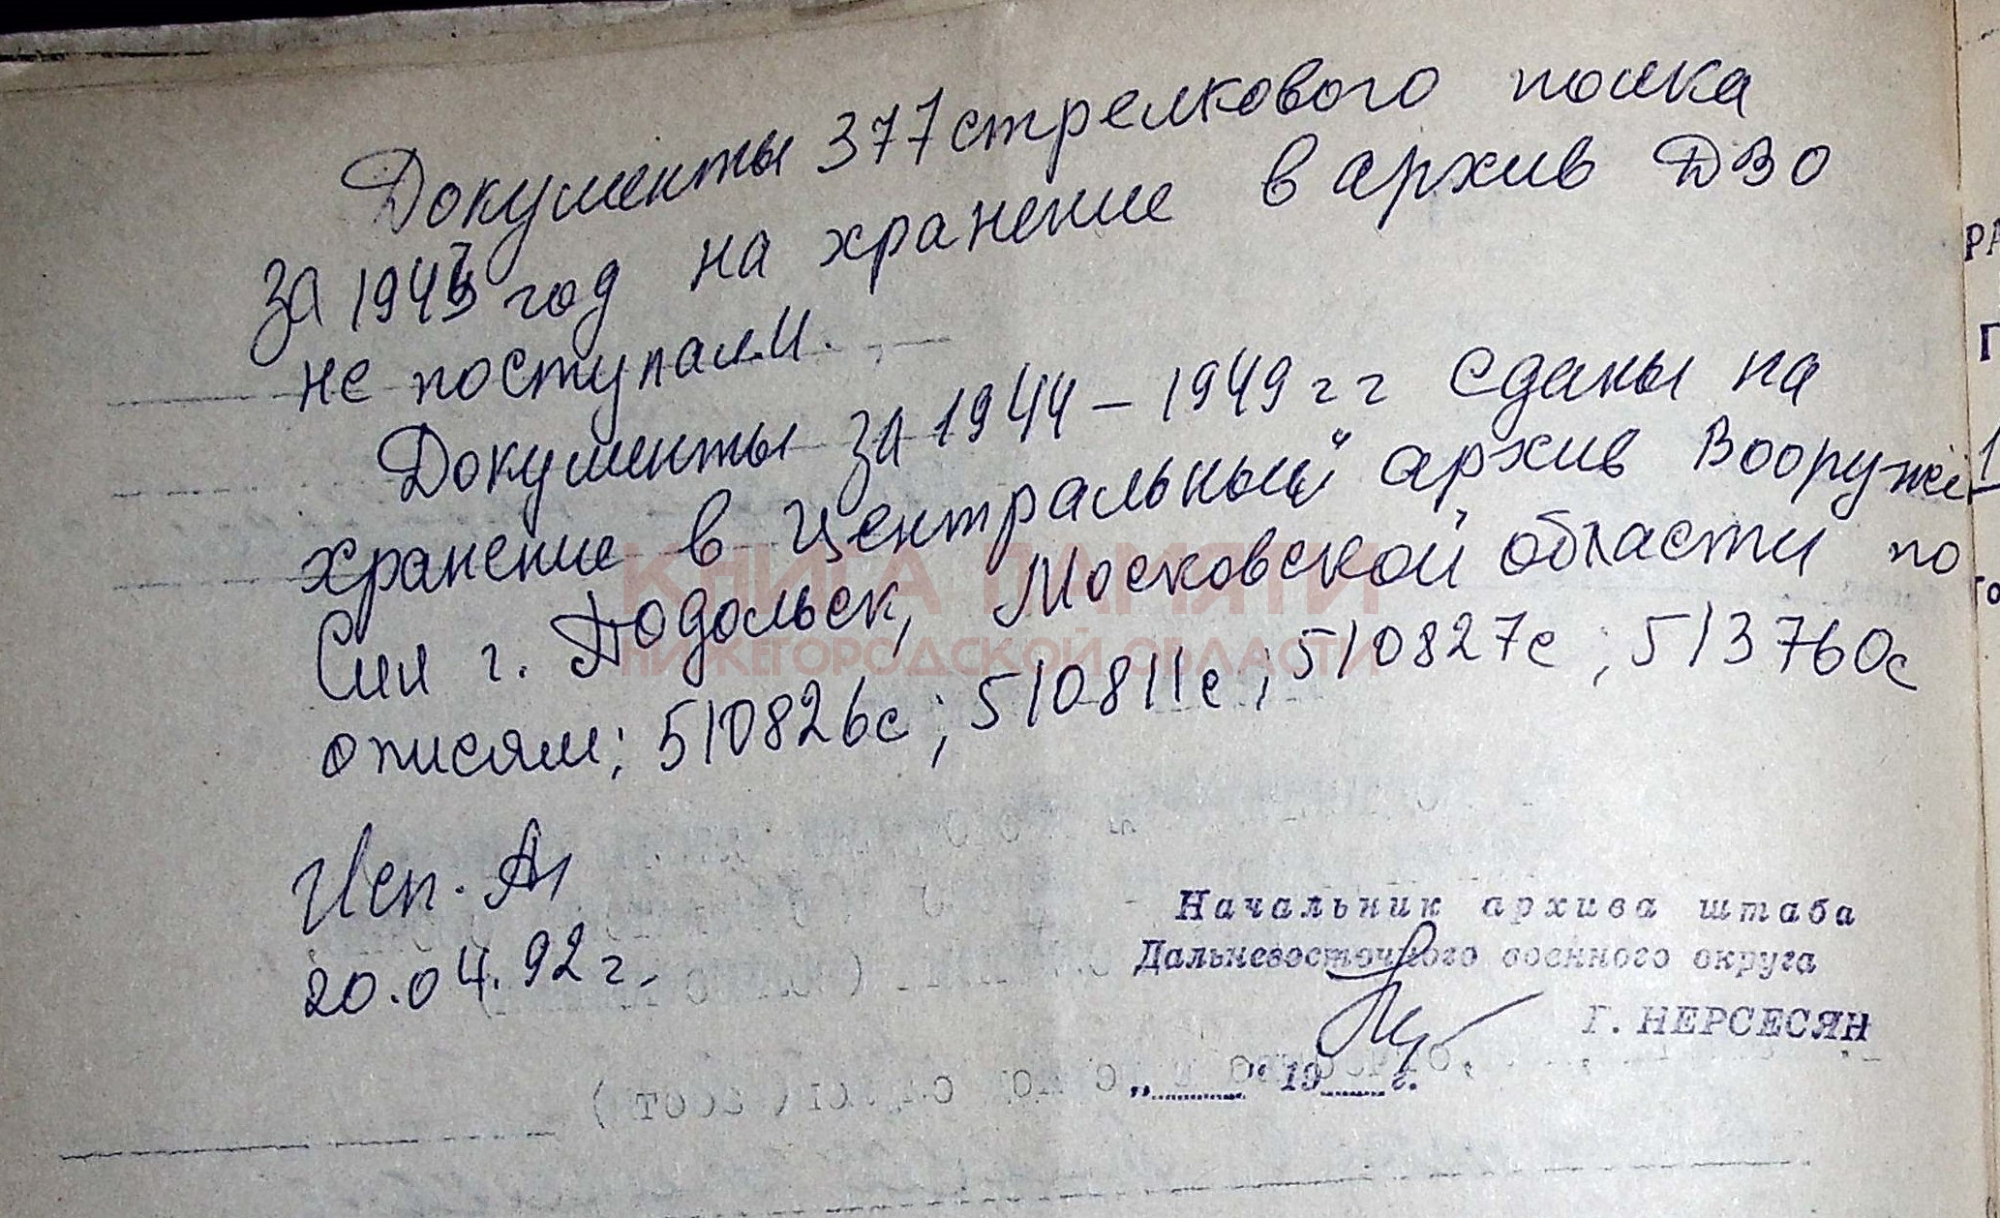 Документы 377 стрелкового полка
за 1943 год на хранение в архив ДВО
не поступали.
Документы за 1944 – 1949 г г сданы на
хранение в Центральный архив Вооруже
Сил г. Подольск, Московской области по
описям; 510826с; 510811с; 510827с; 513760с
КНИГА ПАМЯТИ
НИЖЕГОРОДСКОЙ ОБЛАСТИ
Исп.
20.04.92 г.
Начальник архива штаба
Дальневосточного военного округа
Г. НЕРСЕСЯН
„ " 19 г.